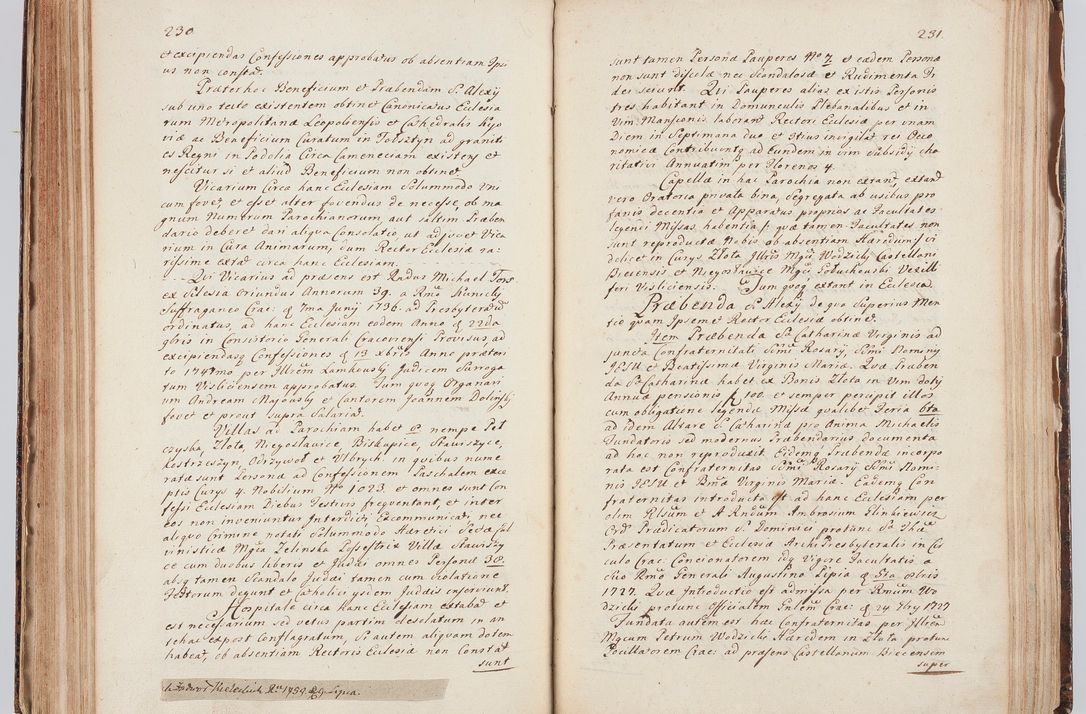 230
et excipiendas Confessiones approbatus ob absentiam Ipsi
us non constat.
Præter hoc Beneficium et Præbendam S. Alexij
sub uno tecto existentem obtinet Canonicatus Ecclesia
rum Metropolitanæ Leopoliensis et Cathedralis Kyo
viæ ac Beneficium Curatum in Tolsztyn ad granici
es Regni in Podolia Circa Cameneciam existens et
nescitur si et aliud Beneficium non obtinet
Vicarium Circa hanc Ecclesiam Solummodo Uni
cum fovet, et esset alter fovendus de necesse, ob ma
gnum Numerum Parochianorum, aut saltim Præben
dario deberet dari aliqua Consolatio, ut adjuvet Vica
rium in Cura Animarum, dum Rector Ecclesiæ ra
rissime extat circa hanc Ecclesiam.
Qui Vicarius ad præsens est Radus Michael
ex Silesia Oriundus Annorum 39. a Rmo Kunicki
Suffraganeo Crac: d 1ma Junij 1736. ad Presbyteratum
ordinatus, ad hanc Ecclesiam eodem Anno d 22da
gbris in Consistorio Generali Cracoviensi Provisus, ad
excipiendasq Confessiones d 13 Xbris Anno præteri
to 1747mo per Illrem Lamkouski Judicem Surroga
tum Visliciensem approbatus. Tum quoq Organari
um Andream Majousky et Cantorem Joannem Dolinsky
fovet et prout supra Salariat.
Villas ad Parochiam habet 8 nempe Pel
czyska, Zlota, Niegoslavice, Biskupice, Stawiszyce,
Kostrzeszyn, Odrzywol et Wbrych in quibus nume
ratæ sunt Personæ ad Confessionem Paschalem exce
ptis Curys 4. Nobilium No 1023. et omnes sunt Con
fessi Ecclesiam Diebus Festivis frequentant, et inter
eos non inveniuntur Interdicti Excommunicati, nec
aliquo Crimine notati Solummodo Hæretici Sectæ Cal
vinisticæ Mgca Zelinska Possestrix Villæ Stawiszy
ce cum duobus liberis et Judæi omnes Personæ 38.
absq tamen Scandalo Judæi tamen cum violatione
Festorum degunt et Catholici ysdem Judæis inserviunt.
Hospitale circa hanc Ecclesiam extabat et
est necessarium sed vetus partim desolatum in an
te hac expost Conflagratum, Si autem aliquam dotem
habeat, ob absentiam Rectoris Ecclesiæ non Constat
sunt
1759. 29 Lipca.
231.
sunt tamen Personæ Pauperes No 7 et eædem Personæ
non sunt discolæ nec Scandalosæ et Rudimenta Fi
dei sciunt. Qui Pauperes alias ex istis Personis
tres habitant in Domunculis Plebanalibus et in
Vim Mansionis laborant Rectori Ecclesiæ per unam
Diem in Septimana duo et 3tius invigilat rei Oeco
nomicæ Contribuentq ad Eundem in vim subsidy cha
ritativi Annuatim per Florenos 4.
Capellæ in hac Parochia non extant, extant
vero Oratoria privata bina, segregata ab usibus pro
fanis decentia et Apparatus proprios ac Facultates
legendi Missas habentia /: quæ tamen Facultates non
sunt reproductæ Nobis ob absentiam Hæredum :/ vi
delicet in Curys Zlota Illris Mgci Wodzicki Castellani
Biecensis et Niegoslavice Mgci Gobuchouski Vexilli
feri Visliciensis. Tum quoq extant in Ecclesia.
Præbenda S. Alexij de qua Superius Men
tio quam Ipsemet Rector Ecclesiæ obtinet.
Item Præbenda Sæ Catharinæ Virginis ad
juncta Confraternitati Ssmi Rosary, Ssmi Nominis
JESU et Beatissimæ Virginis Mariæ. Quæ Præben
da Sæ Catharinæ habet ex Bonis Zlota in Vim dotis
Annuæ pensionis f 100. et semper perupit illos
cum obligatione legendi Missæ qualibet Feria 6ta
ad idem Altare S. Catharinæ pro Anima Michaelis
Fundatoris sed modernus Præbendarius documenta
ad hoc non reproduxit. Eidemq Præbendæ incorpo
rata est Confraternitas Ssmi Rosary Ssmi Nomi-
nis JESU et Bmæ Virginis Mariæ. Eademq Con
fraternitas introducta est ad hanc Ecclesiam per
olim Rlsum et A Rndum Ambrosium Glinkiewicz
Ord Prædicatorum S. Dominici protunc Sæ Thæ
Præsentatum et Ecclesiæ Archi Presbyteralis in Cir
culo Crac Concionatorem idq Vigore Facultatis a
suo Rmo Generali Augustino Pipia d 5ta 8bris
1727. Quæ Introductio est admissa per Rmum Wo
dzicki protunc Officialem Gnlem Crac: d 24 7bry 1727
Fundata autem est hæc Confraternitas per Illrem
Mgcum Petrum Wodzicki Hæredem in Zlota protunc
Pocillatorem Crac: ad præsens Castellanum Biecensem
super